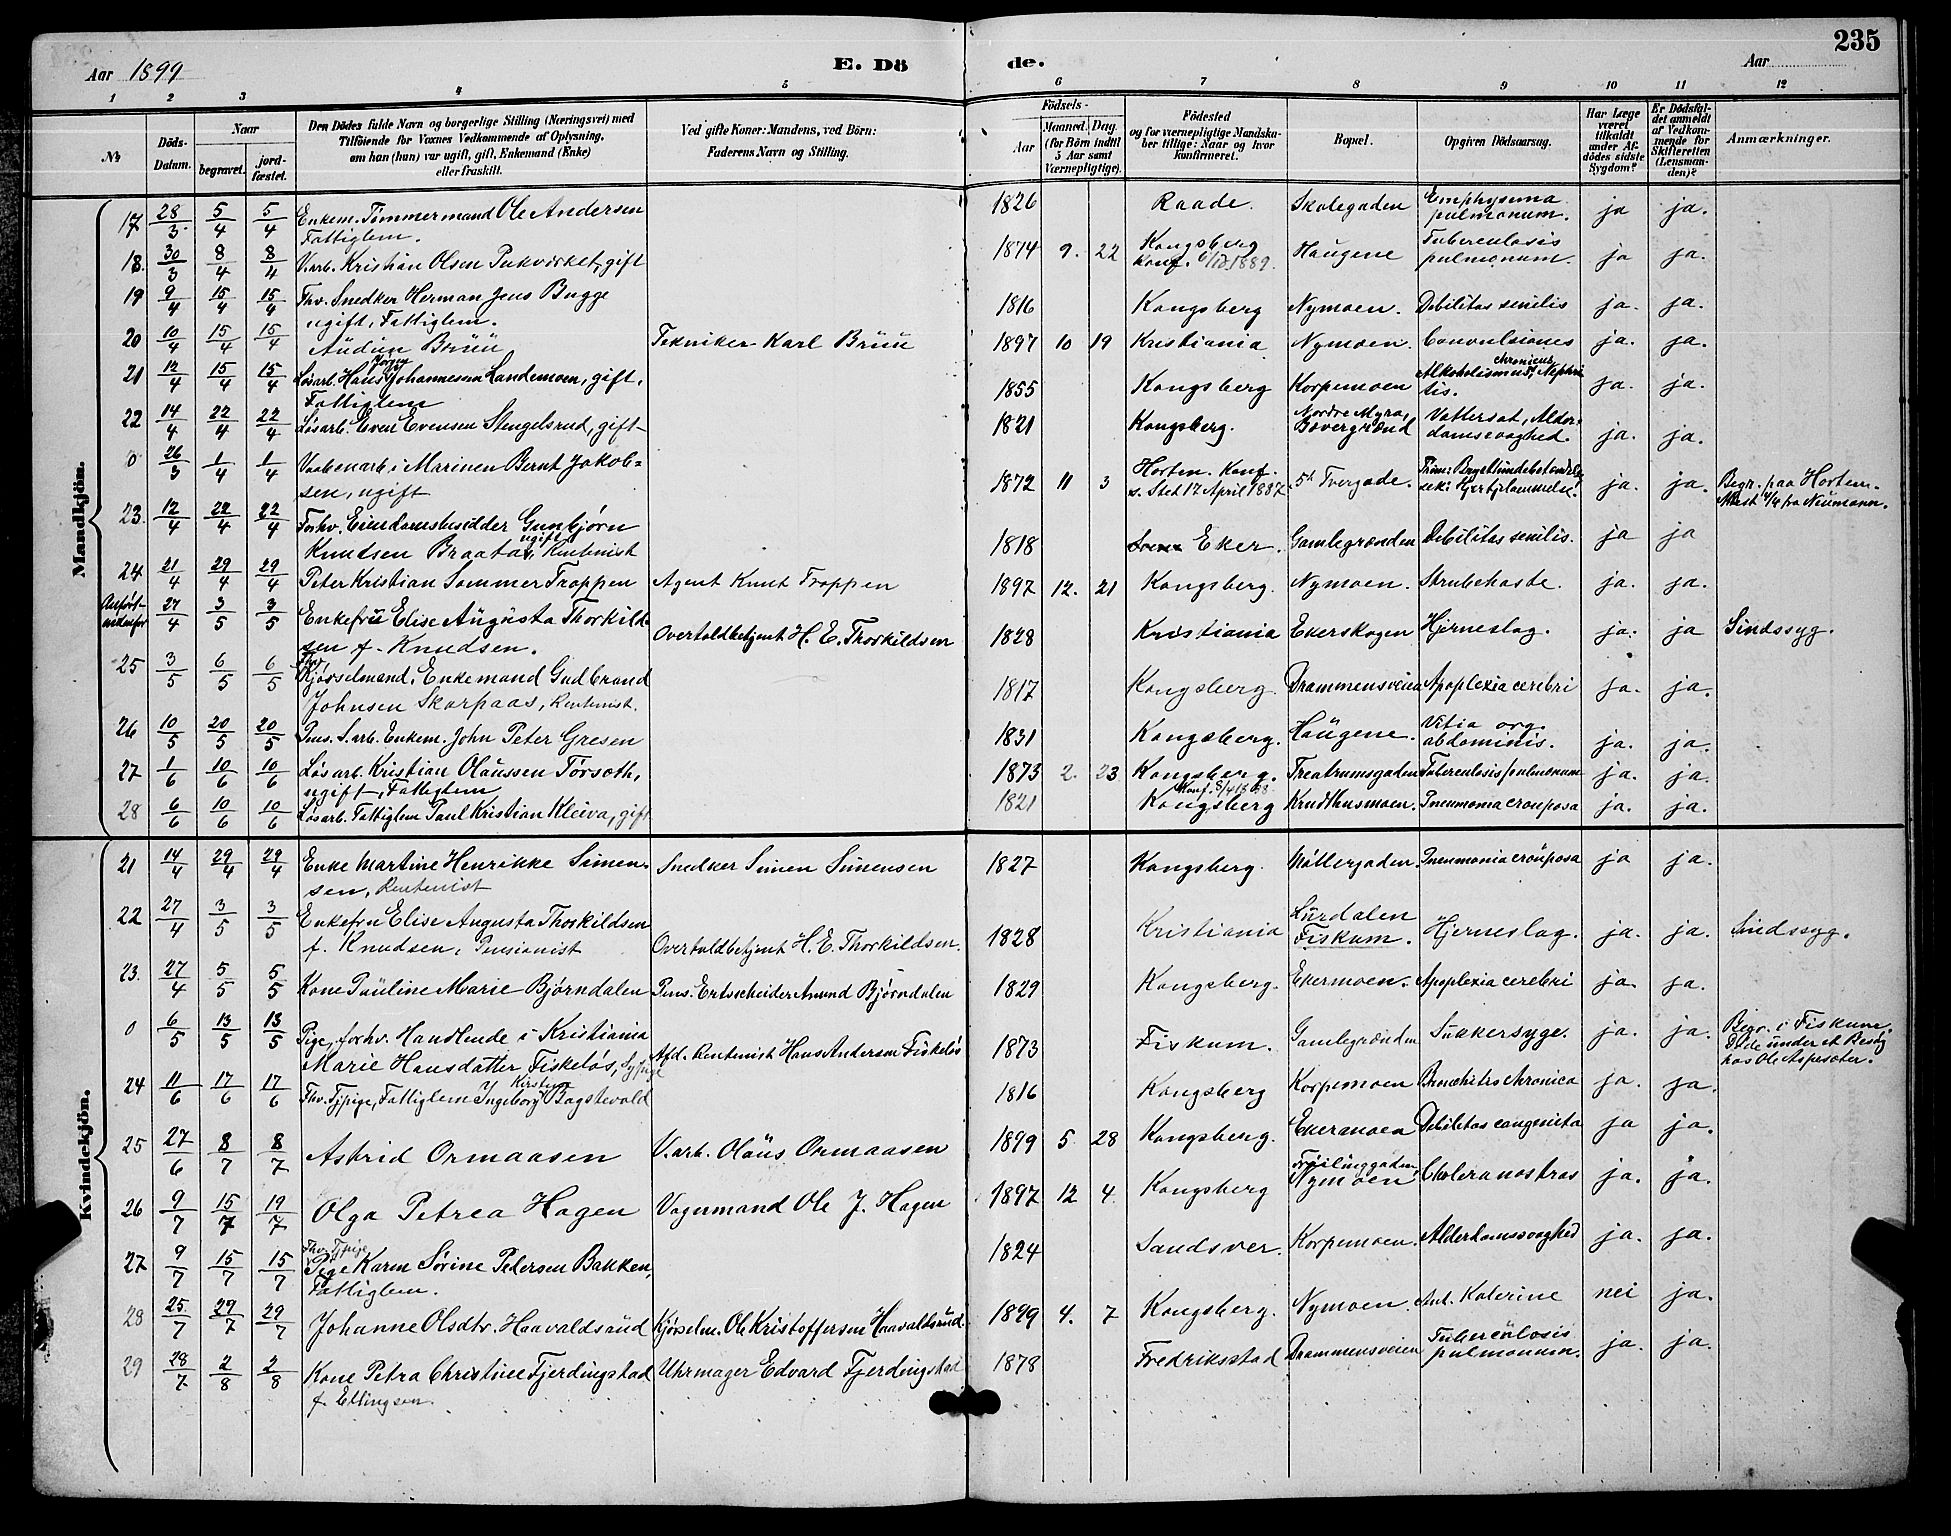 235
Aar 1899 E. Dö de. Aar
1 2 3 4 5 6 7 8 9 10 11 12
№
Döds-Datum.
Naar
begravet.
jord-fæstet.
Den Dödes fulde Navn og borgerlige Stilling (Næringsvei) med
Tilföiende for Voxnes Vedkommende af Oplysning,
om han (hun) var ugift, gift, Enkemand (Enke)
eller fraskilt.
Ved gifte Koner: Mandens, ved Börn:
Faderens Navn og Stilling.
Födsels-
Aar
Maaned. Dag.
(for Börn indtil
5 Aar samt
Værnepligtige).
Födested
og for værnepligtige Mandska-
ber tillige: Naar og hvor
konfirmeret.
Bopæl.
Opgiven Dödsaarsag.
Har Læge
været
tilkaldt
under Af-
dödes sidste
Sygdom?
Er Dödsfal-
det anmeldt
af Vedkom-
mende for
Skifteretten
(Lensman-
den)?
Anmærkninger.
Mandkjön.
17 28/3 5/4 5/4 Enkem. Tømmermand Ole Andersen Fattiglem. 1826 Raade. Skolegaden Emphysema pulmonum. ja ja.
18. 30/3 8/4 8/4 V.arb. Kristian Olsen Pukverket, gift 1874 9. 22 Kongsberg Konf. 1889. Haugene Tuberculosis pulmonum. ja ja.
19 9/4 15/4 15/4 Fhv. Snedker Herman Jens Bugge ugift, Fattiglem. 1816 Kongsberg Nymoen. Debilitas senilis ja. ja.
20 10/4 15/4 15/4 Audun Bruu Tekniker Karl Bruu 1897 10 19 Kristiania Nymoen. Convulsiones ja. ja.
21 12/4 15/4 15/4 Løsarb. Hans Johannesen Landemoen, gift. Fattiglem 1855 Kongsberg Korpemoen Alkoholismus chronicus, Nephritis. ja. ja.
22 14/4 22/4 22/4 Løsarb. Even Evensen Stengelsrud, gift 1821 Kongsberg. Nordre Myra, Bævergrænd Vattersot, Alderdamssvaghed. ja. ja.
0 26/3 1/4 1/4 Vaabenarb. i Marinen Bernt Jakobsen, ugift 1872 11 3 Horten. Konf. s. Sted 17 April 1887. 5te Tvergade. Hjertelammelse. ja. ja. Begr. paa Horten.
23. 12/4 22/4 22/4 Forhv. Eiendomsbesidder Gunbjørn Knudsen Braata, ugift, Rentenist 1818 Eker. Gamlegrænden Debilitas senilis. ja ja
24 21/4 29/4 29/4 Peter Kristian Sommer Froppen Agent Knut Froppen 1897 12. 21 Kongsberg. Nymoen. Strubehoste. ja. ja.
Anført nedenfor 27/4 3/5 3/5 Enkefru Elise Augusta Thorkildsen f. Knudsen. Overtoldbetjent H. E. Thorkildsen 1828 Kristiania Ekerskogen Hjerneslag. ja. ja Sindssyg.
25 3/5 6/5 6/5 Fhv. Kjørselmand, Enkemand Gudbrand Johnsen Skarpaas, Rentenist. 1817 Kongsberg. Drammensveien Apoplexia cerebri ja. ja.
26 10/5 20/5 20/5 Pens. S.arb. Enkem. John Peter Gresen 1831 Kongsberg. Haugene. Vitia org. abdominis. ja. ja.
27 1/6 10/6 10/6 Løsarb. Kristian Olaussen Tørsoth, ugift, Fattiglem 1873 2. 23 Kongsberg. Teatrumsgaden Tuberculosis pulmonum ja. ja.
28 6/6 10/6 10/6 Løsarb. Fattiglem Paul Kristian Kleiva, gift 1821 Kongsberg Krudthusmoen. Pneumonia crouposa ja. ja.
Kvindekjön.
21 14/4 29/4 29/4 Enke Martine Henrikke Simensen, Rentenist Snedker Simen Simensen 1827 Kongsberg. Møllergaden. Pneumonia crouposa ja ja.
22 27/4 3/5 3/5 Enkefru Elise Augusta Thorkildsen f. Knudsen, Pensionist Overtoldbetjent H. E. Thorkildsen. 1828 Kristiania Lurdalen Fiskum. Hjerneslag. ja. ja. Sindssyg.
23. 27/4 5/5 5/5 Kone Pauline Marie Bjørndalen Pens. Ertsscheider Amund Bjørndalen 1829 Kongsberg. Ekermoen. Apoplexia cerebri ja. ja.
0 6/5 13/5 13/5 Pige, forhv. Handlende i Kristiania Marie Hansdatter Fiskeløs, Sypige Afd. Rentenist Hans Andersen Fiskeløs 1873 Fiskum. Gamlegrænden Sukkersyge. ja. ja. Begr. i Fiskum. Døde under et Besøg hos Ole Aspesæter.
24 11/6 17/6 17/6 Fhv. Tjpige, Fattiglem Ingeborg Kirstine Bagstevold 1816 Kongsberg Korpemoen Bronchitis chronica ja. ja.
25 27/6 8/7 8/7 Astrid Ormaasen V.arb. Olaus Ormaasen 1899 5. 28 Kongsberg. Ekermoen Debilitas congenita ja ja.
26 9/7 15/7 19/7 Olga Petrea Hagen Vognmand Ole J. Hagen 1897 12 4. Kongsberg Nymoen Cholera nostras ja. ja.
27 9/7 15/7 15/7 Fhv. Tjpige Pige Karen Sørine Pedersen Bakken, Fattiglem. 1824 Sandsver. Korpemoen. Alderdomssvaghed ja. ja.
28 25/7 29/7 29/7 Johanne Olsdtr. Haavaldsrud Kjørselm. Ole Kristoffersen Haavaldsrud. 1899 4. 7 Kongsberg. Nymoen. Ant. Kolerine nei ja.
29 28/7 2/8 2/8 Kone Petra Christine Fjerdingstad f. Ellingsen. Uhrmager Edvard Fjerdingstad 1878 Fredriksstad Drammensveien Tuberculosis pulmonum. ja. ja.